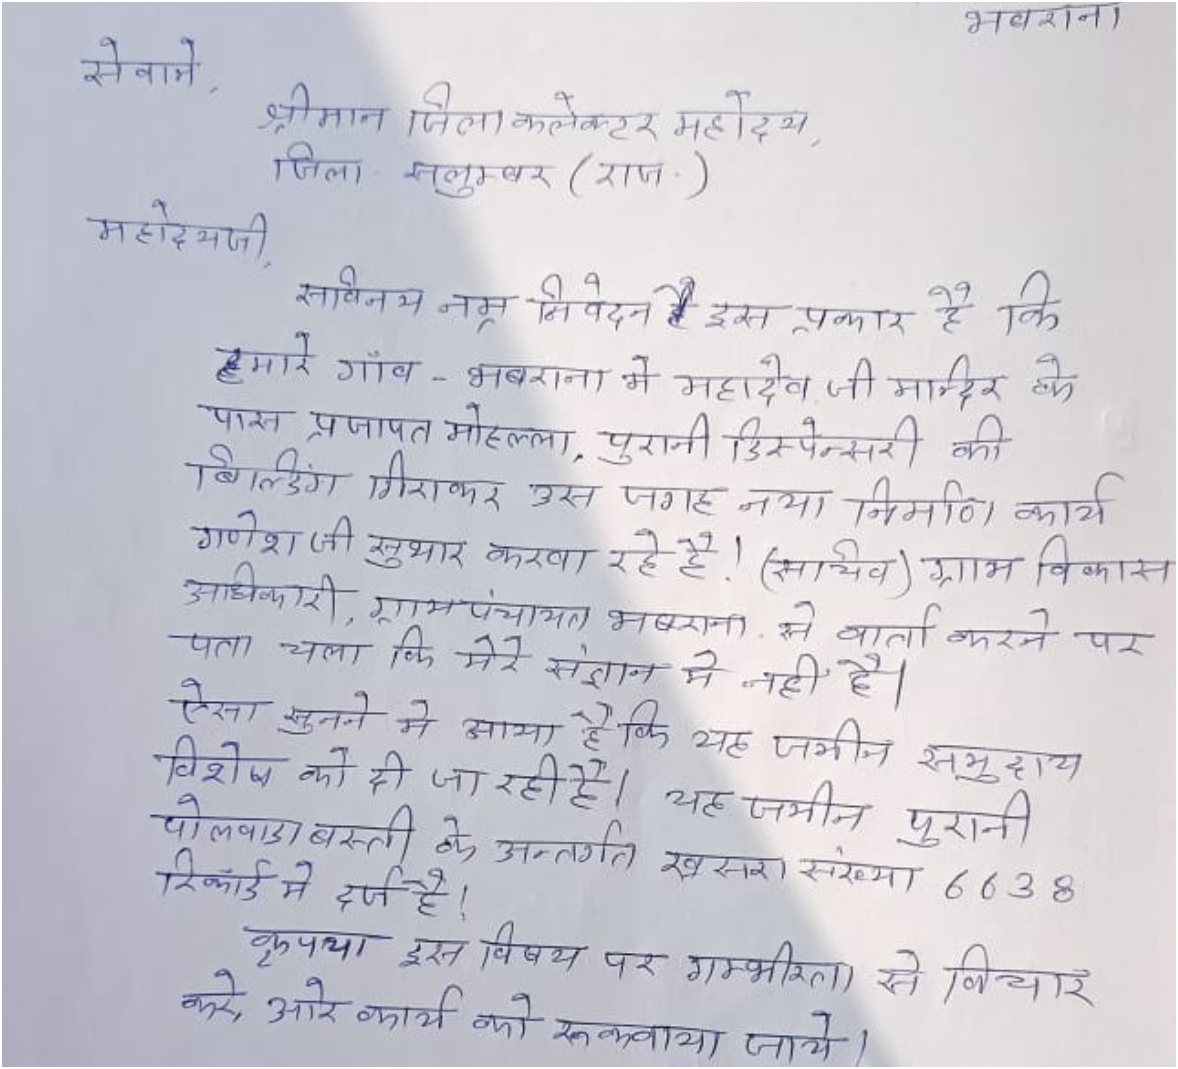 भबराना
सेवामे,
श्रीमान जिला कलेक्टर महोदय,
जिला. सलुम्बर (राज.)
महोदयजी,
सविनय नम्र निवेदन है इस प्रकार है कि
हमारे गाँव - भबराना मे महादेव जी मान्दिर के
पास प्रजापत मोहल्ला, पुरानी डिस्पेन्सरी की
बिल्डिंग गिराकर उस जगह नया निर्माण कार्य
गणेश जी सुथार करवा रहे है! (सचिव) ग्राम विकास
अधिकारी, ग्राम पंचायत भबराना. से वार्ता करने पर
पता चला कि मेरे संज्ञान मे नही है।
ऐसा सुनने मे आया है कि यह जमीन समुदाय
विशेष को दी जा रही है। यह जमीन पुरानी
पोलवाडा बस्ती के अन्तर्गत खसरा संख्या 6638
रिकॉर्ड मे दर्ज है!
कृपया इस विषय पर गम्भीरता से विचार
करे, ओर कार्य को रूकवाया जाये।